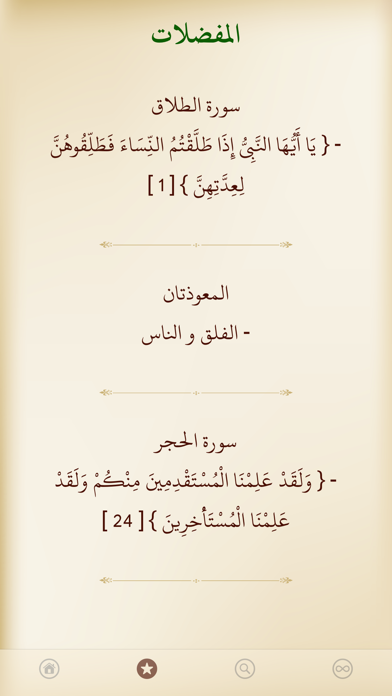 المفضلات
سورة الطلاق
- { يَا أَيُّهَا النَّبِيُّ إِذَا طَلَّقْتُمُ النِّسَاءَ فَطَلِّقُوهُنَّ
لِعِدَّتِهِنَّ } [ 1 ]
المعوذتان
- الفلق و الناس
سورة الحجر
- { وَلَقَدْ عَلِمْنَا الْمُسْتَقْدِمِينَ مِنْكُمْ وَلَقَدْ
عَلِمْنَا الْمُسْتَأْخِرِينَ } [ 24 ]